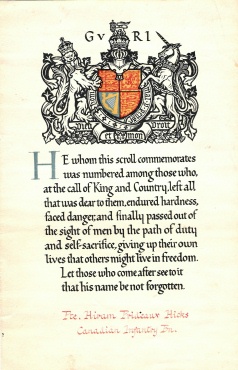 G V R I
Dieu et mon droit
HE whom this scroll commemorates
was numbered among those who,
at the call of King and Country, left all
that was dear to them, endured hardness,
faced danger, and finally passed out of
the sight of men by the path of duty
and self-sacrifice, giving up their own
lives that others might live in freedom.
Let those who come after see to it
that his name be not forgotten.
Pte. Hiram Prideaux Hicks
Canadian Infantry Bn.